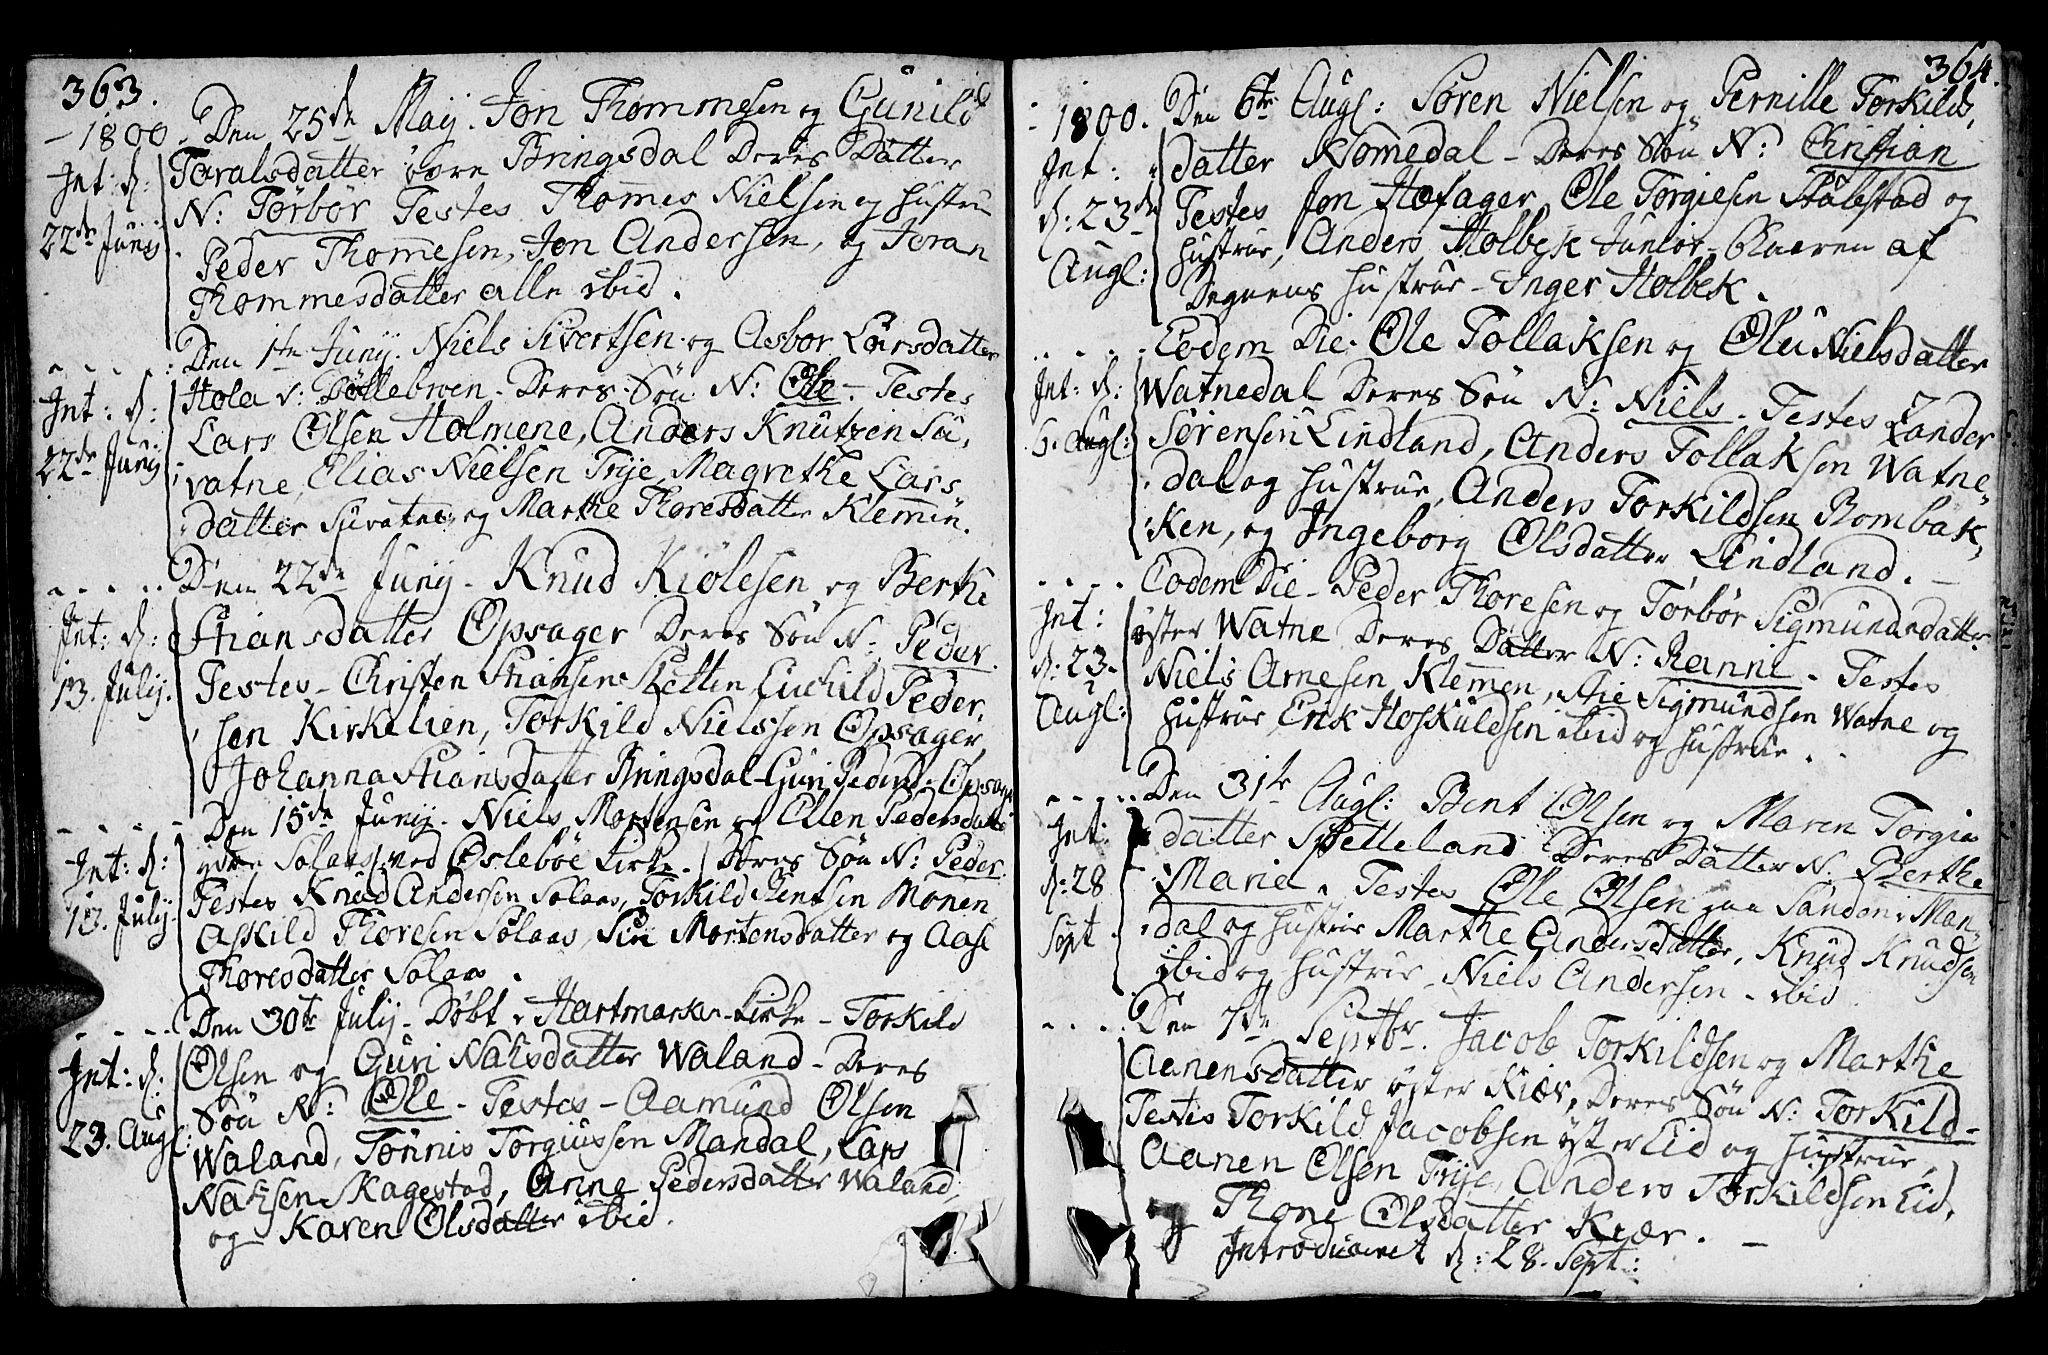 363.
1800. Den 25de Maij. Jon Thommesen og Gunild
Int: d: 22de Junij
Toralsdatter øvre Bringsdal Deres Datter
N: Torbor Testes Thomes Nielsen og Hustru
Peder Thomesen, Jon Andersen, og Joran
Thommesdatter alle ibid.
Den 1te Junij. Niels Sivertsen og Asbor Larsdatter
Int: d: 22de Junij
Hola v: Døllebroen. Deres Søn N: Ole. Testes
Lars Olsen Holmene, Anders Knutzen Su,
vatne, Elias Nielsen Trije, Magrethe Lars
datter Suvatne, og Marthe Thoresdatter Klemmn.
Den 22de Junij. Knud Kiølesen og Berthe
Int: d: 13. Julij.
Stiansdatter Opsager Deres Søn N: Peder.
Testes. Christen Stiansen Stetten Euchild Peder,
sen Kirkelien, Torkild Nielssen Opsager,
Johanna Stiansdatter Bringsdal. Guri Peders: Opsager
Den 15de Junij. Niels Mortensen og Ellen Pedersdatter
Int: d: 13. Julij
ydre Solaas (ved Øslebøe Kirke.) Deres Søn N: Peder.
Testes Knud Andersen Solaas, Torkild Bentsen Monen
Askild Thoresen Solaas, Siri Mortensdatter og Aase
Thoresdatter Solaas.
Den 30te Julij. Døbt i Hartmarks Kirke. Torkild
Int: d: 23. Augl:
Olsen og Guri Nahsdatter Waland. Deres
Søn N: Ole. Testes. Aamund Olsen
Waland, Tønnis Torgiussen Mandal, Lars
Nahsen Skagestad, Anne Pedersdatter Waland,
og Karen Olsdatter ibid.
364.
1800. Den 6te Augl: Søren Nielsen og Pernille Torkilds,
Int: d: 23de Augl:
datter Homedal. Deres Søn N: Christian
Testes Jon Hofager, Ole Torgiesen Stålestad og
Hustrue, Anders Holbek Junior. Baaren af
Degnens Hustrue. Inger Holbek.
Eodem Die. Ole Tollaksen og Oleu Nielsdatter
Int: d: 6. Augl:
Watnedal Deres Søn N: Niels. Testes Zander
Sørensen Lindland, Anders Tollaksen Watne,
dal og Hustrue, Anders Torkildsen Rombak,
ken, og Ingeborg Olsdatter Lindland.
Eodem Die. Peder Thoresen og Torbor Sigmundsdatter
Int: d: 23. Augl:
øster Watne Deres Datter N: Rannil. Testes
Niels Arnesen Klemmen, Stie Sigmundsen Watne og
Hustrue, Erik Hoskuldsen ibid og Hustrue.
Den 31te Augl: Bent Olsen og Maren Torgie
Int: d: 28 Sept
datter Spetteland Deres Datter N. Berthe
Marie. Testes Ole Olsen paa Sanden i Man,
dal og Hustrue Marthe Andersdatter, Knud Knudsen
ibid og Hustrue. Niels Andersen. ibid
Den 7de Septbr. Jacob Torkildsen og Marthe
Aanensdatter øster Kiær, Deres Søn N: Torkild.
Testes Torkild Jacobsen øster Eid og Hustrue,
Aanen Olsen Trije, Anders Torkildsen Eid,
og Thone Olsdatter Kiær.
Introduceret d: 28. Sept: